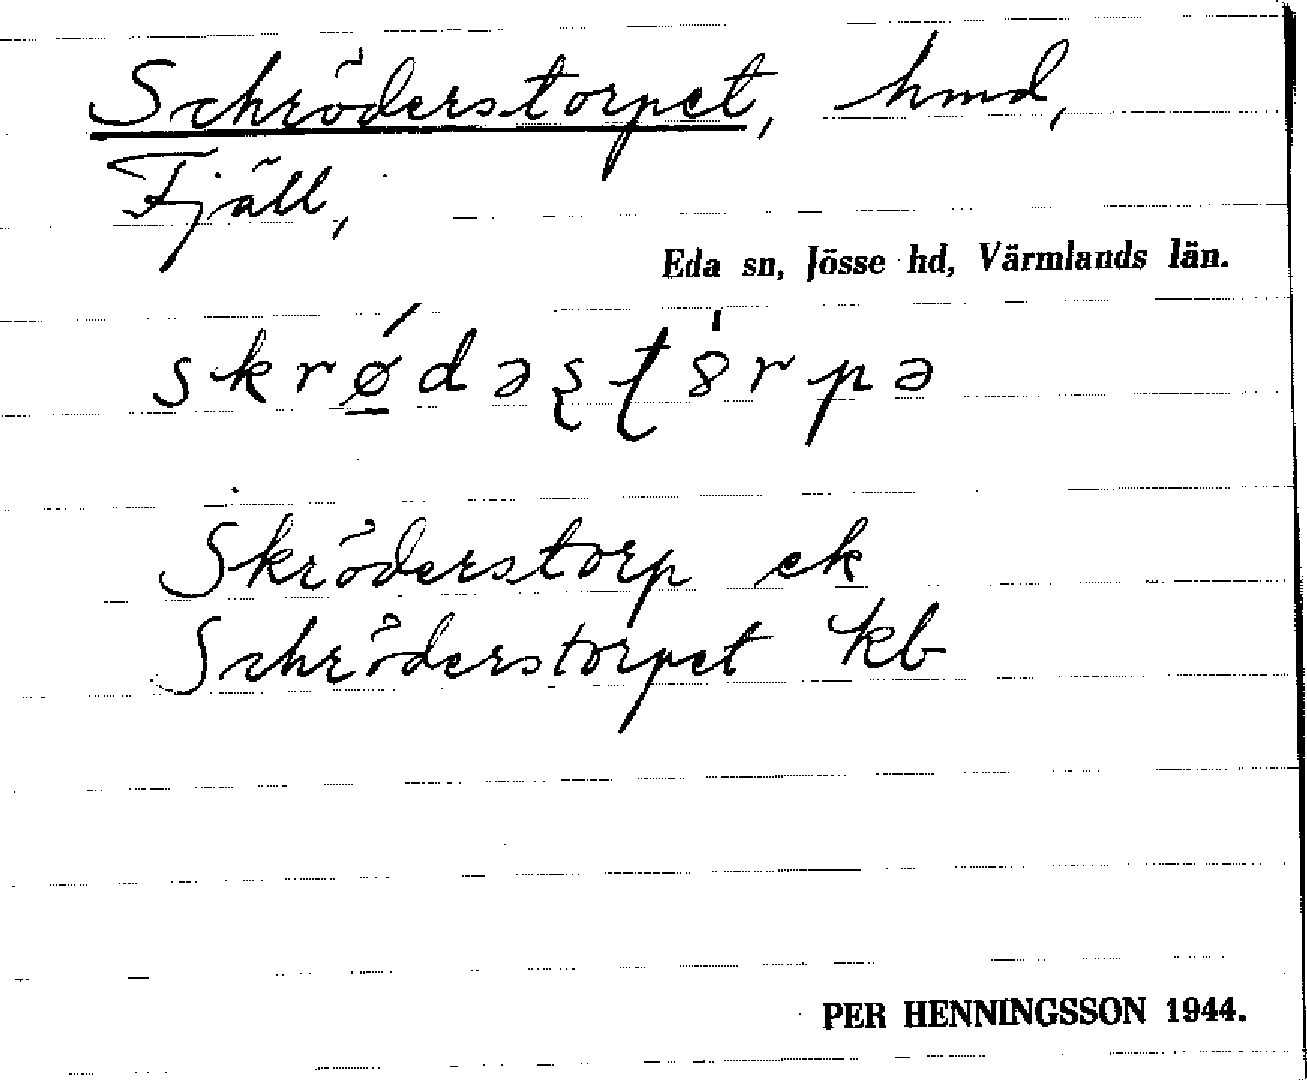 Schröderstorpet, hmd,
Fjäll,
Eda sn, Jösse hd, Värmlands län.
skrǿ̱dəʂʈ8̍rpə
Skröderstorp ek
Schröderstorpet kb
PER HENNINGSSON 1944.